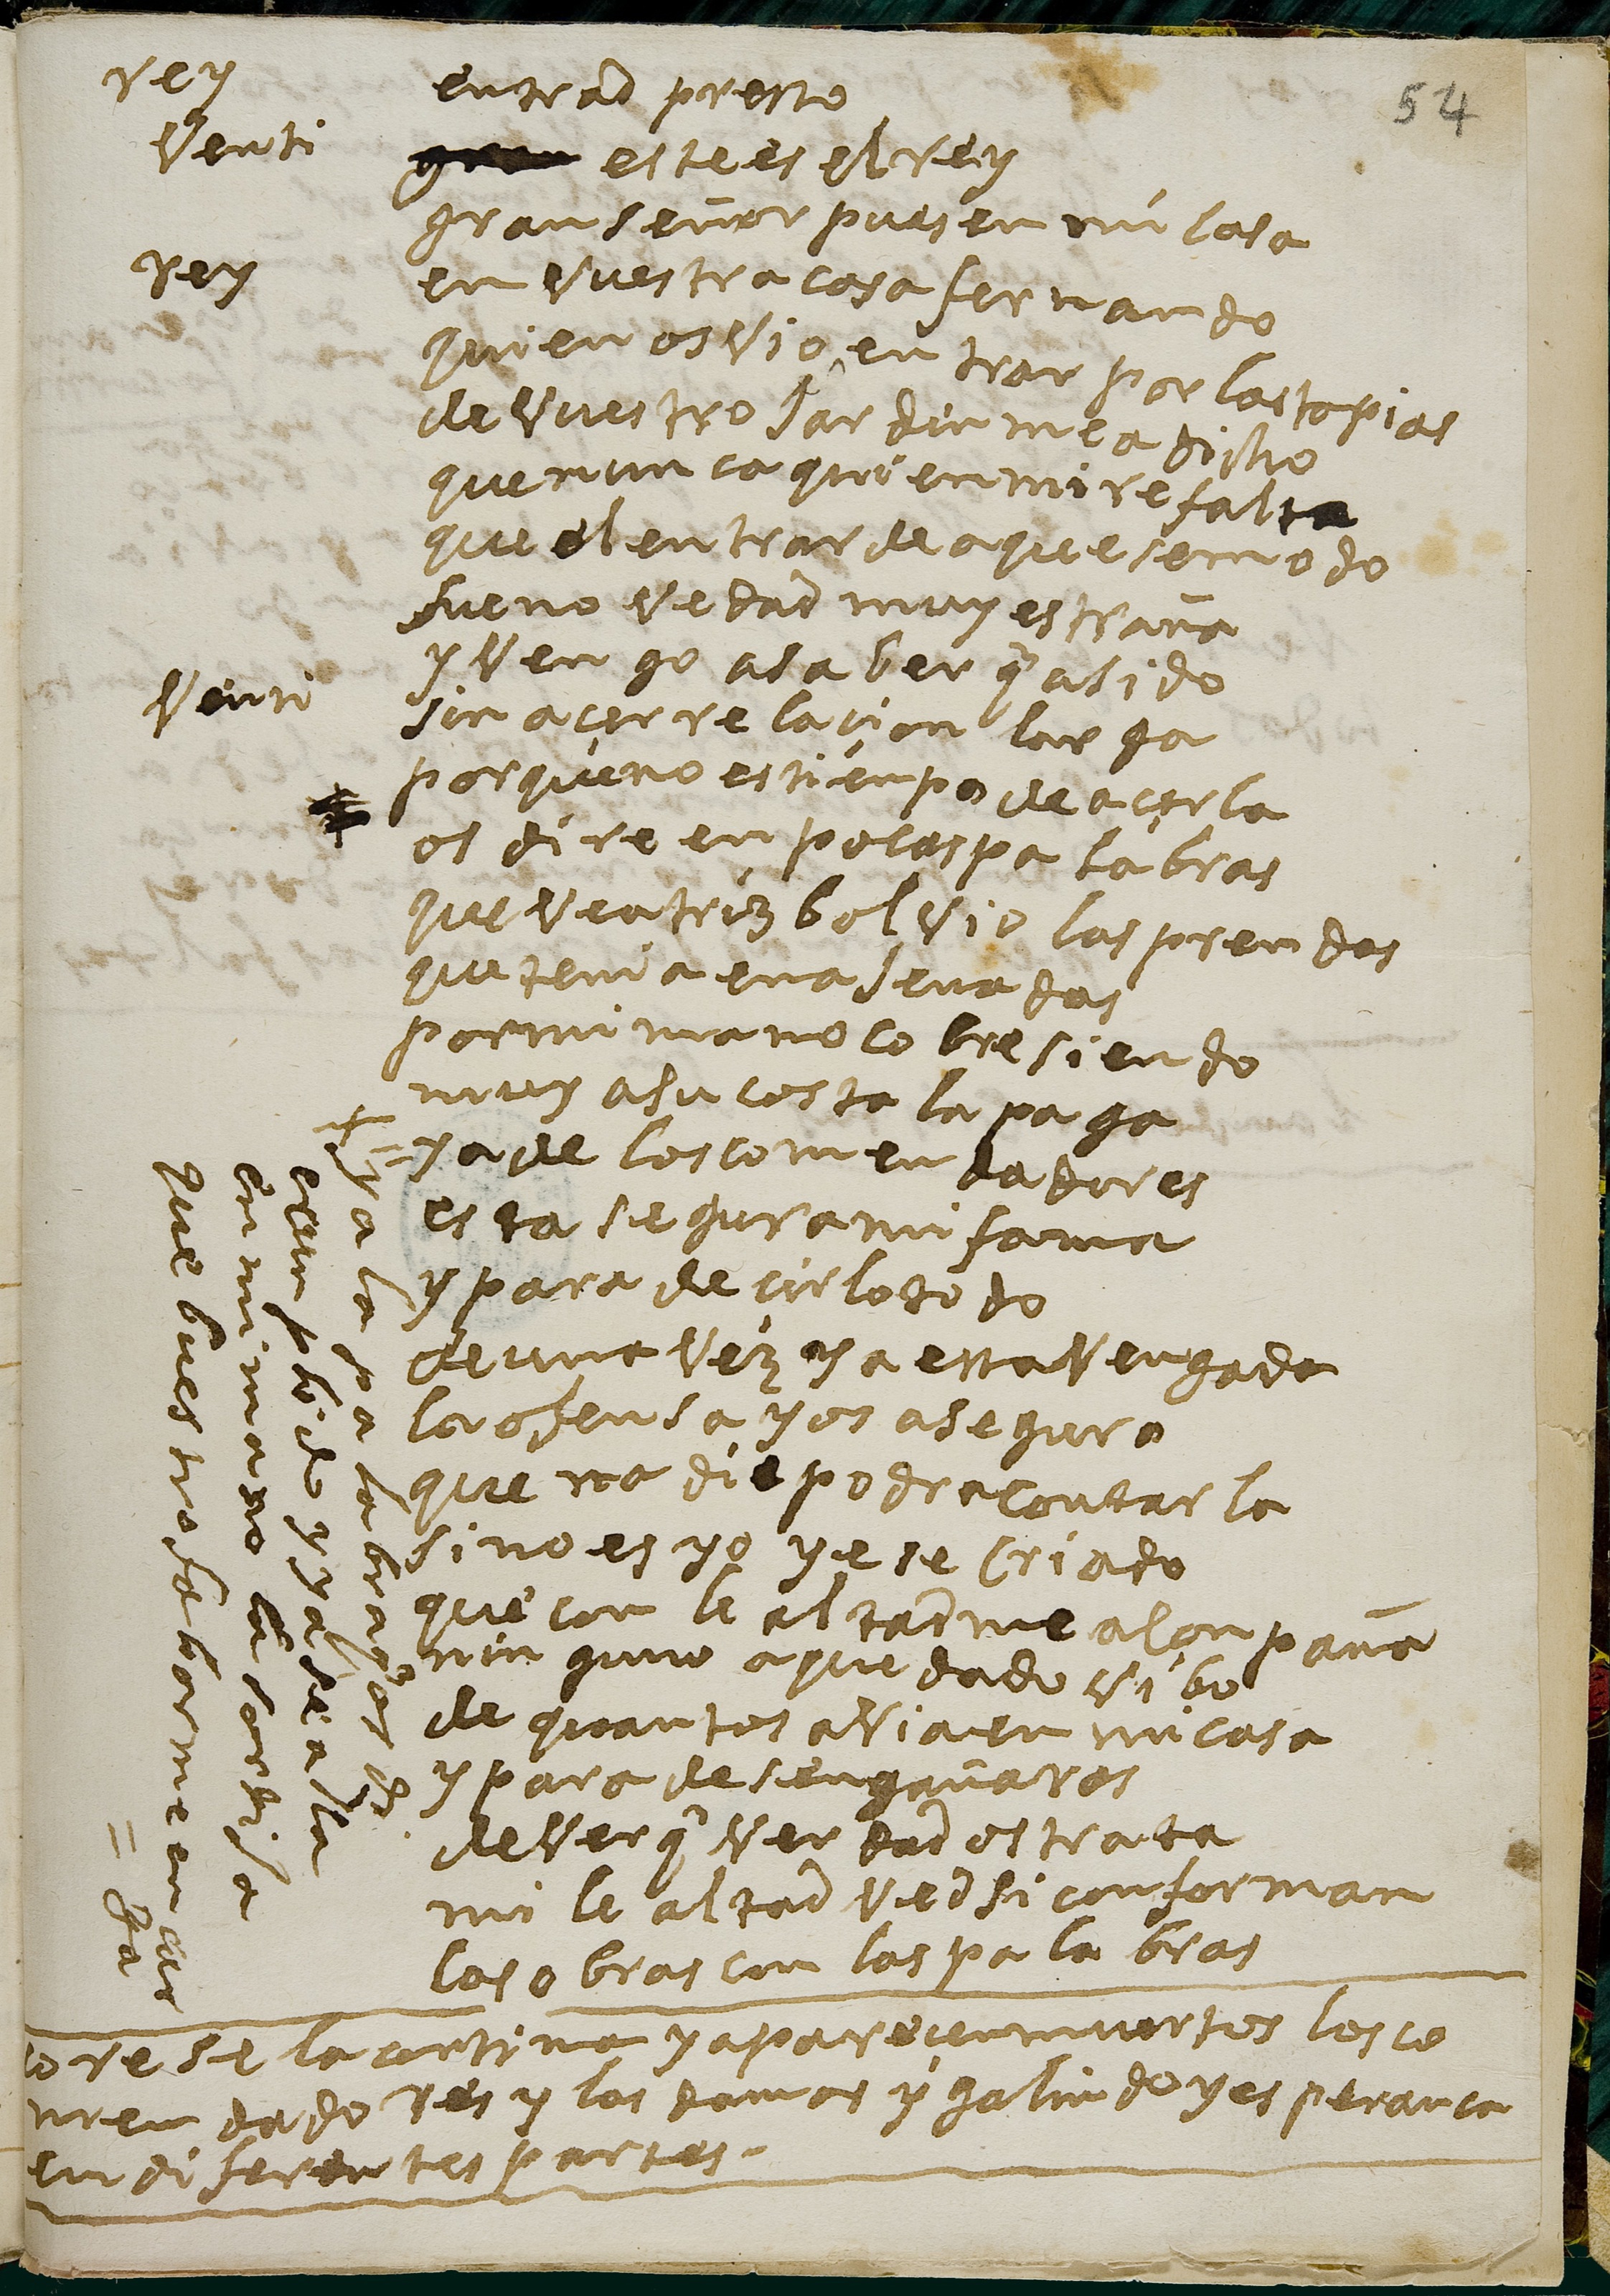 54
rey entrad presto
Venti este es el rey
gran señor pues en mi casa
rey en Vuestra casa fernando
quien os Vio entrar por las tapias
de Vuestro Jardin me a dicho
que nunca quien mire falta
que el entrar de aquese modo
fue novedad muy estraña
y Vengo a saber q̃ a sido
Venti sin açer relaçion larga
porque no es tienpo de açerla
os dire en pocas palabras
que Veatriz bolVio las prendas
que tenia enaSenadas
por mi mano cobre siendo
muy a su costa la paga
ya de los comendadores
esta segura mi fama
y para decirlo todo
de una Vez ya esta Vengada
la ofensa y os aseguro
que nadie podra contarla
sino es yo y ese criado
que con lealtad me acompaña
ninguno a quedado Vibo
de quantos aVia en mi casa
y para desengañaros
de Ver q̃ Verdad os trata
mi lealtad Ved si conforman
las obras con las palabras
ya la palabra q̃ os di
e cunplido y ya se alla
en mi mano la sortija
que buestro fabor me encar
= ga
corese la cortina y aparecen muertos los co
mendadores y las damas y galindo y esperança
en diferentes partes.